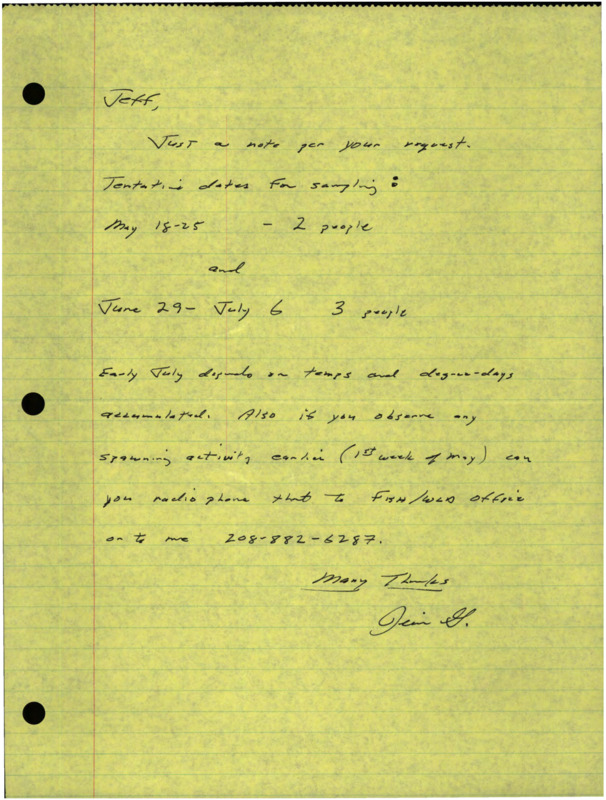 Jeff,
Just a note per your request.
Tentative dates for sampling:
May 18-25 - 2 people
and
June 29- July 6 3 people
Early July depends on temps and degree-days
accumulated. Also if you observe any
spawning activity earlier (1st week of May) can
you radio phone that to Fish/Wld Office
or to me 208-882-6287.
Many Thanks
Jim G.